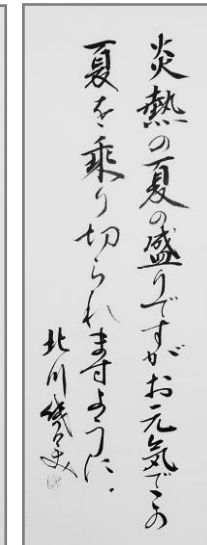 炎熱の夏の盛りですがお元気でこの
夏を乗り切られますように。
北川